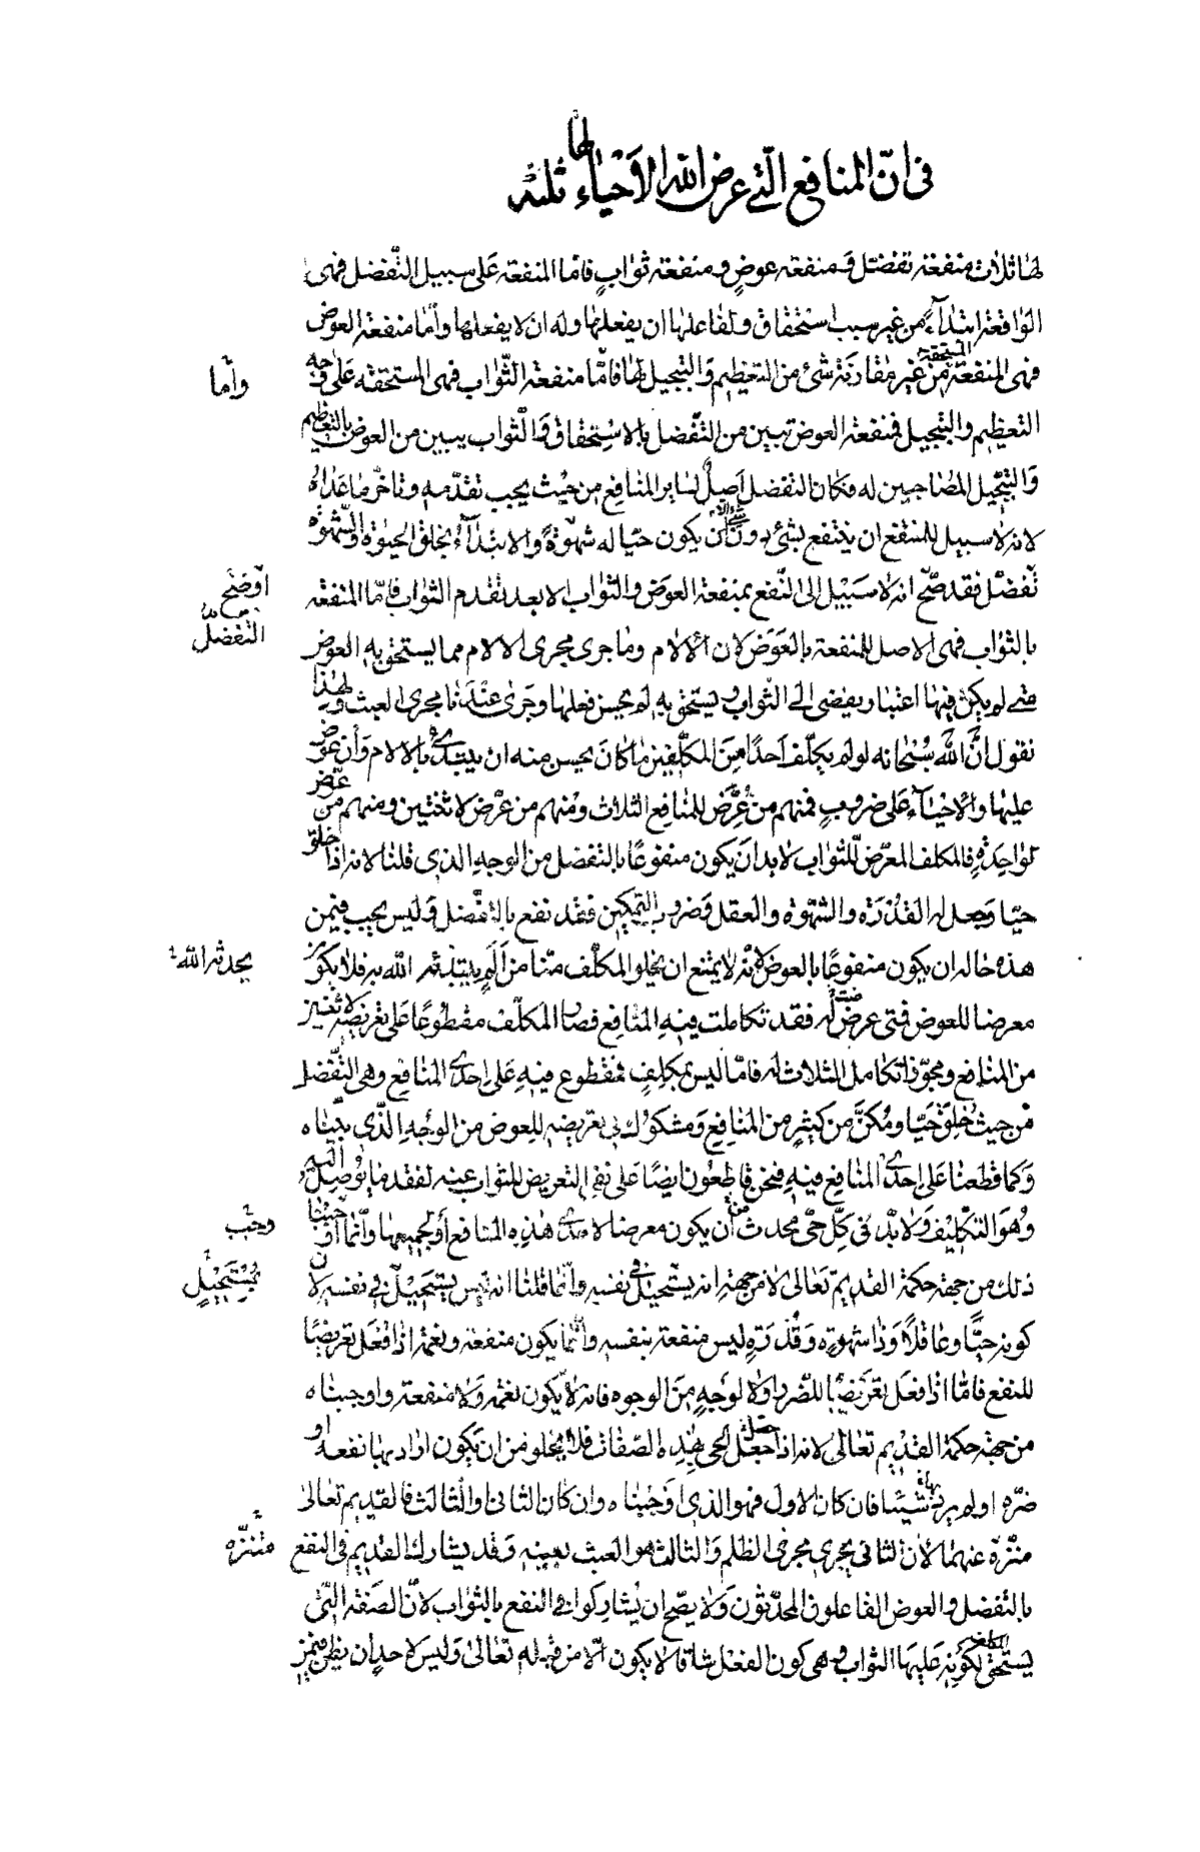 في انّ المنافع الّتي عرض الله الاَحياء لها ثلثة
لها ثلاث منفعة تفضّل ومنفعة عوضٍ ومنفعة ثوابٍ فامّا المنفعة عَلى سبيل التّفضل فهى
الواقعة ابتداءً من غير سبب استحقاق ولفاعلها ان يفعلها وله ان لا يفعلها وأمّا منفعة العوض
فهى المنفعة المستحقة من غير مقارنة شئ من التعظيم وَالتبجيل لها فامّا منفعة الثّواب فهى المستحقه عَلى وجه
وأمّا
التعظيم والتبجيل فمنفعة العوض تبين من التّفضل بالاستحقاق وَالثّواب يبين من العوض بالتعظيم
وَالتبجيل المصاحبين له فكان التفضل اَصلٌ لسائر المنافع من حيث يجب تقدّمه وتاخّر ما عَداهُ
لانه لا سبيل للمنتفع ان ينتفع بشئ دون أن يكون حيّا له شهوةً والابتداءُ بخلق الحيوة والشّهوة
تفضّل فقد صَّح انه لا سَبيْل الى النّفع بمنفعة العوَض والثواب الا بعد تقدم الثواب فامّا المنفعة
اوضَح
التّفضّل
بالثّواب فهى الاصل للمنفعة بالعَوَض لان الالام وما جرى مجرى الالام مما يستحق به العوض
متى لم يكن فيها اعتبار يفضى الى الثّواب ويستحق به لم يحسن فعلها وجَرى عنْدَنا مجرى العبث ولهذا
نقول انَّ اللهَ سُبْحانه لو لم يكلّف اَحدًا مِنَ المكلّفين ما كانَ يحسن منه ان يبتدى بالالام وَأن عوّض
عليها والأحياء عَلى ضروبٍ فمنهم من عُرِّض للمنافع الثلاث ومنهم من عرّض لاثنتين ومنهم من عرّض
لواحِدةٍ فالمكلف المعرّض للثواب لابد انَ يكون منفوعًا بالتفضل من الوجهِ الذى قلنا لانه اذا خلق
حيّا وَجعل له القُدْرَة والشهّوة والعقل وَضروب التمكين فقد نفع بالتفضل وَليس يجب فيمن
هذه حاله ان يكون منفوعًا بالعوض لانّه لا يمتنع ان يخلو المكلّف منّا من اَلَمٍ يبتدئه الله به فلا يكون
يحدثه الله
معرضا للعوض فمتى عرض له فقد تكاملت فيه المنافع فصار المكلّف مقطوعًا عَلى تعريضه لاثنين
من المنافع ومجوّزا تكامل الثلاث له فامّا ليس بمكلفٍ فمقطوع فيه عَلى اِحدى المنافع وهى التّفضل
من حيثُ خُلِقَ حَيّا ومُكنَّ من كثيرٍ من المنافِع وَمشكوك فى تعريضه للِعوض من الوجهِ الّذى بيّناه
وَكما قطعنا عَلى اِحدى المنافع فيهِ فنحن قاطعُون ايضًا عَلى نفى التعريض للثواب عنه لفقد ما يُوصِلُ اليه
وُهوَ التكليف وَلا بدّ فى كلّ حىّ محدث من أن يكون معرضا لاحدى هذه المنافع أو لجميعها وانّما اوجبنا
وجب
ذلك من جهة حكمة القديم تَعالى لا من جهة انه يستحيل فى نفسه وانّما قلنا انه ليس يستَحيل فى نفسه لان
بمُسْتَحيْلٍ
كونه حيًّا وعاقلاً وَذا شهوةٍ وَقُدْرَةٍ ليس منفعة بنفسه وانّما يكون منفعة ونعمة اذا فُعَل تعريضًا
للنفع فامّا اذا فعل تعَريضًا للضّرر او لا لوَجهٍ مِنَ الوجوه فانه لا يكون نعمة وَلا منفعة واوجبناه
من جهة حكمة القدْيم تعَالى لانه اذا جعَل الحى بهذِه الصّفات فلا يخلو من ان يَكون اراد بها نفعه او
ضرّه او لم يرد بها شيئا فان كان الاول فهو الذى اوجبناه وان كان الثانى والثالث فالقديم تعالى
منزّه عنهما لان الثانى يجرى مجرى الظلم وَالثالث هو العبث بعينه وَقد يشارك القديم فى النفع
متنزّه
بالتّفضل والعوض الفاعلون المحدثون وَلا يصّح ان يُشاركوا فى النفع بالثواب لانّ الصّفة الّتى
يستحق المكلف لكَوْنِه عَليها الثواب وهى كون الفعل شاقا لا يكون الّا من قبله تعَالى وَليس لاحدٍ ان يظن فيمن